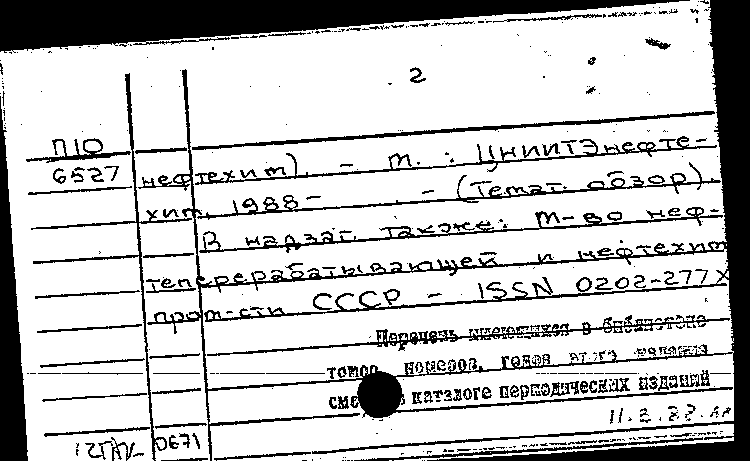 2
П10
6527
нефтехим). - М. : ЦНИИТЭнефте-
хим, 1988- . - (Темат. обзор).
В надзаг. также: М-во неф-
теперерабатывающей и нефтехим
пром-сти СССР - ISSN 0202-277X
Перечень имеющихся в библиотеке
томов, номеров, годов этого издания
см. в каталоге периодических изданий
0671